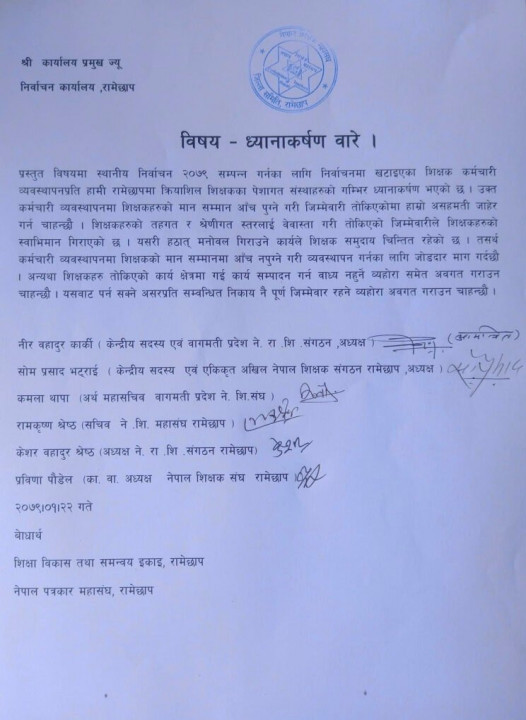 श्री कार्यालय प्रमुख ज्यू
निर्वाचन कार्यालय ,रामेछाप
विषय - ध्यानाकर्षण वारे ।
प्रस्तुत विषयमा स्थानीय निर्वाचन २०७९ सम्पन्न गर्नका लागि निर्वाचनमा खटाइएका शिक्षक कर्मचारी
व्यवस्थापनप्रति हामी रामेछापमा क्रियाशिल शिक्षकका पेशागत संस्थाहरुको गम्भिर ध्यानाकर्षण भएको छ । उक्त
कर्मचारी व्यवस्थापनमा शिक्षकहरुको मान सम्मान आँच पुग्ने गरी जिम्मेवारी तोकिएकोमा हाम्रो असहमती जाहेर
गर्न चाहन्छौ । शिक्षकहरुको तहगत र श्रेणीगत स्तरलाई बेवास्ता गरी तोकिएको जिम्मेवारीले शिक्षकहरुको
स्वाभिमान गिराएको छ । यसरी हठात् मनोवल गिराउने कार्यले शिक्षक समुदाय चिन्तित रहेको छ । तसर्थ
कर्मचारी व्यवस्थापनमा शिक्षकको मान सम्मानमा आँच नपुग्ने गरी व्यवस्थापन गर्नका लागि जोडदार माग गर्दछौ
। अन्यथा शिक्षकहरु तोकिएको कार्य क्षेत्रमा गई कार्य सम्पादन गर्न वाध्य नहुने व्यहोरा समेत अवगत गराउन
चाहन्छौ । यसवाट पर्न सक्ने असरप्रति सम्वन्धित निकाय नै पूर्ण जिम्मेवार रहने व्यहोरा अवगत गराउन चाहन्छौ ।
नीर वहादुर कार्की ( केन्द्रीय सदस्य एवं वागमती प्रदेश ने. रा .शि .संगठन ,अध्यक्ष )
सोम प्रसाद भट्राई ( केन्द्रीय सदस्य एवं एकिकृत अखिल नेपाल शिक्षक संगठन रामेछाप ,अध्यक्ष )
कमला थापा (अर्थ महासचिव वागमती प्रदेश ने. शि.संघ )
रामकृष्ण श्रेष्ठ (सचिव ने .शि. महासंघ रामेछाप )
केशर वहादुर श्रेष्ठ (अध्यक्ष ने. रा .शि .संगठन रामेछाप)
प्रविणा पौडेल (का. वा. अध्यक्ष नेपाल शिक्षक संघ रामेछाप )
२०७९।०१।२२ गते
बोधार्थ
शिक्षा विकास तथा समन्वय इकाइ, रामेछाप
नेपाल पत्रकार महासंघ, रामेछाप